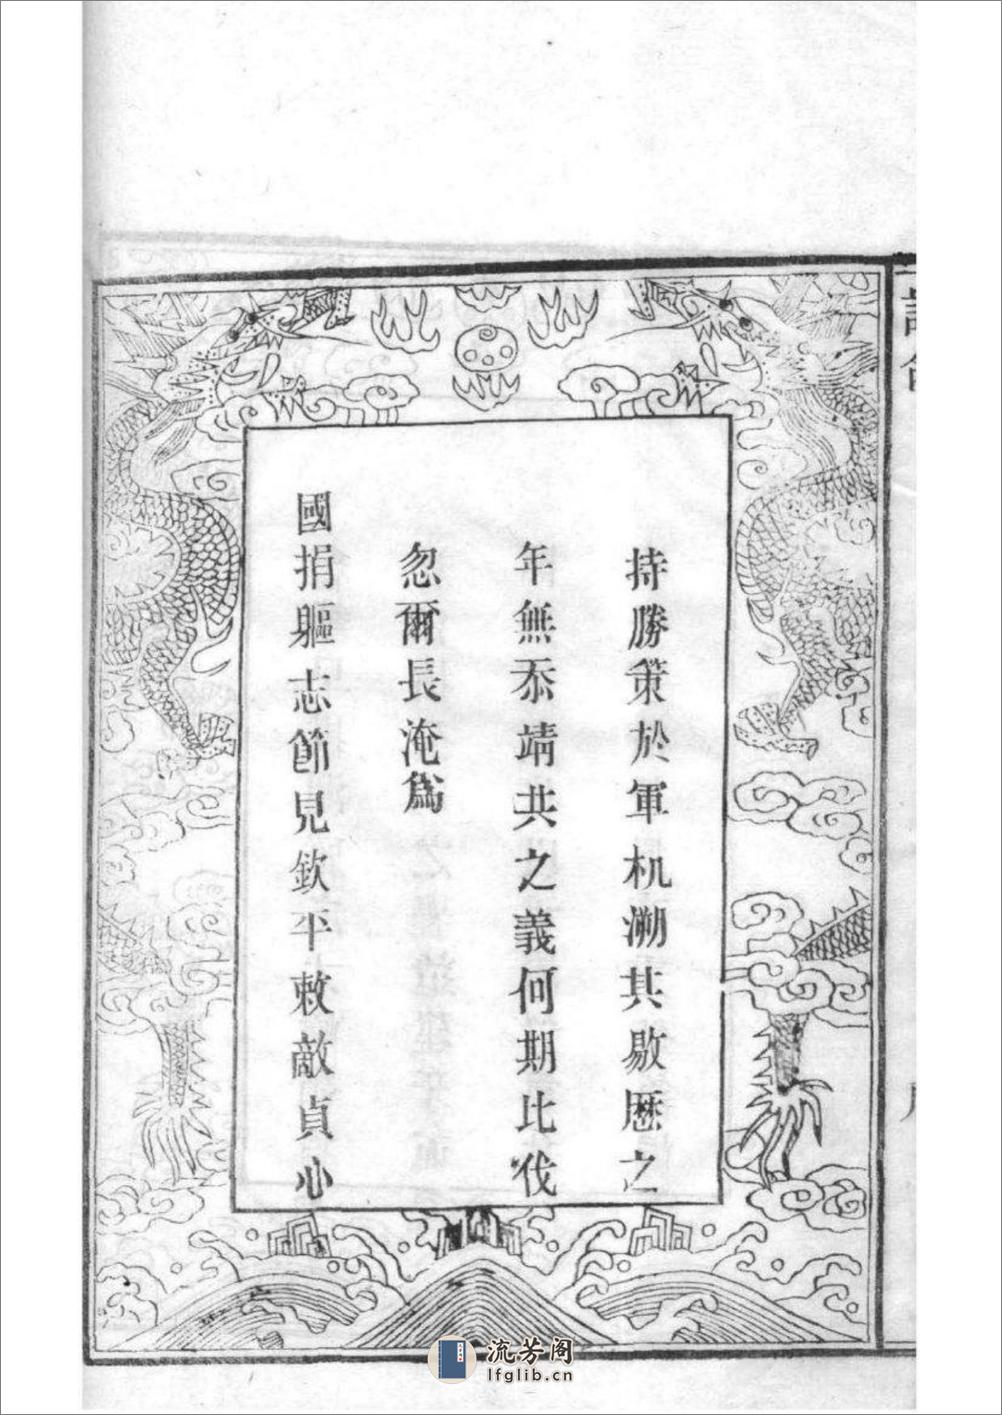 持勝策於軍机溯其敭歷之
年無忝靖共之義何期比伐
忽爾長淹爲
國捐軀志節見欽平敕敵貞心
流芳阁
lfglib.cn